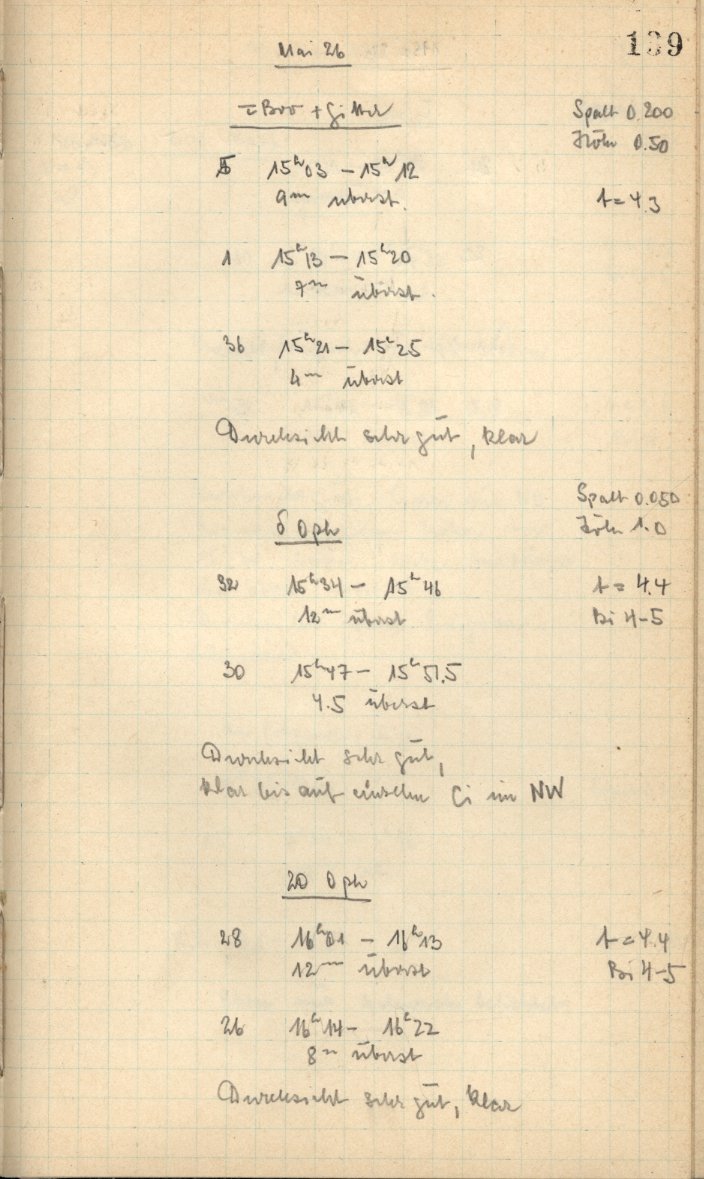 139
Mai 26
τ Boo + Gitter
Spalt 0.200
Höhe 0.50
5 15ʰ03 – 15ʰ12
9ᵐ überst.
t = 4.3
1 15ʰ13 – 15ʰ20
7ᵐ überst.
36 15ʰ21 – 15ʰ25
4ᵐ überst
Durchsicht sehr gut, klar
Spalt 0.050
δ Oph
Höhe 1.0
32 15ʰ34 – 15ʰ46
t = 4.4
12ᵐ überst
Bi 4-5
30 15ʰ47 – 15ʰ51.5
4.5 überst
Durchsicht sehr gut,
klar bis auf einzelne Ci im NW
20 Oph
28 16ʰ01 – 16ʰ13
t = 4.4
12ᵐ überst
Bi 4-5
26 16ʰ14 – 16ʰ22
8ᵐ überst
Durchsicht sehr gut, klar